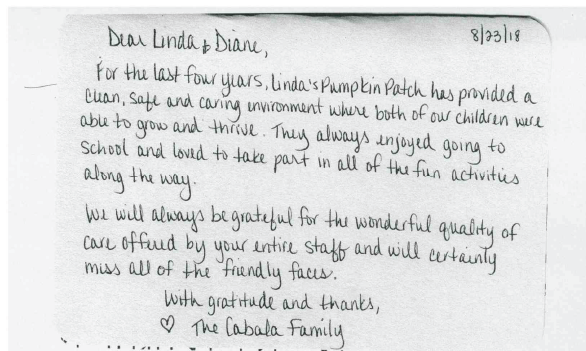 8/23/18
Dear Linda & Diane,
For the last four years, Linda's Pumpkin Patch has provided a
clean, safe and caring environment where both of our children were
able to grow and thrive. They always enjoyed going to
school and loved to take part in all of the fun activities
along the way.
We will always be grateful for the wonderful quality of
care offered by your entire staff and will certainly
miss all of the friendly faces.
With gratitude and thanks,
♡ The Cabala Family